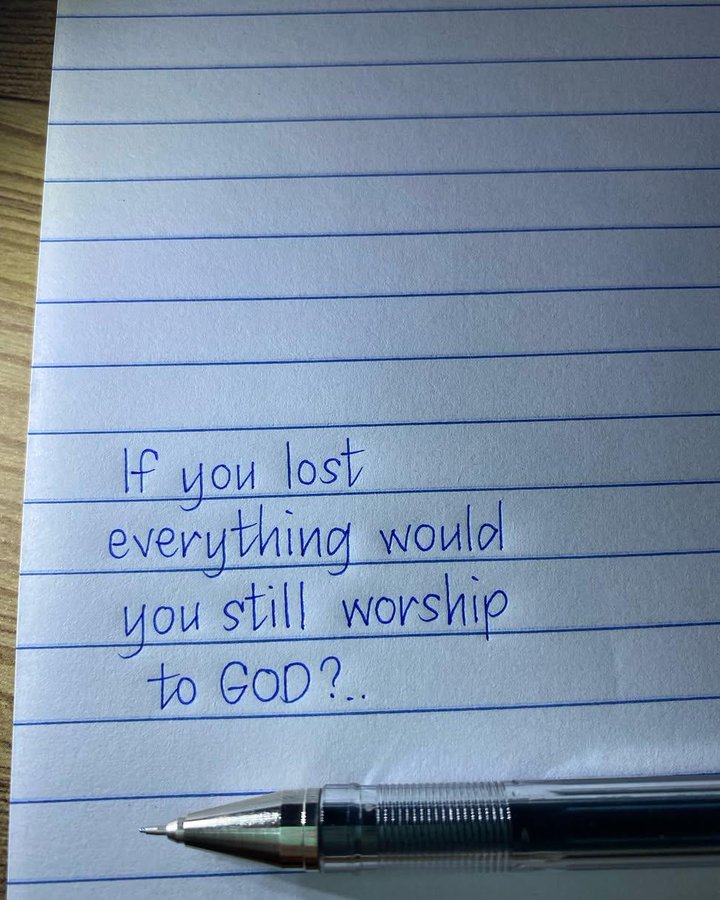 If you lost
everything would
you still worship
to GOD?..